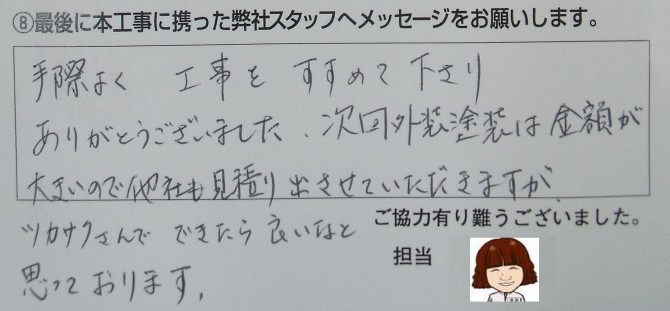 ⑧最後に本工事に携った弊社スタッフへメッセージをお願いします。
手際よく 工事を すすめて 下さり
ありがとうございました。次回外装塗装は金額が
大きいので他社も見積り出させていただきますが
ツカサクさんで できたら良いなと
思っております。
ご協力有り難うございました。
担当